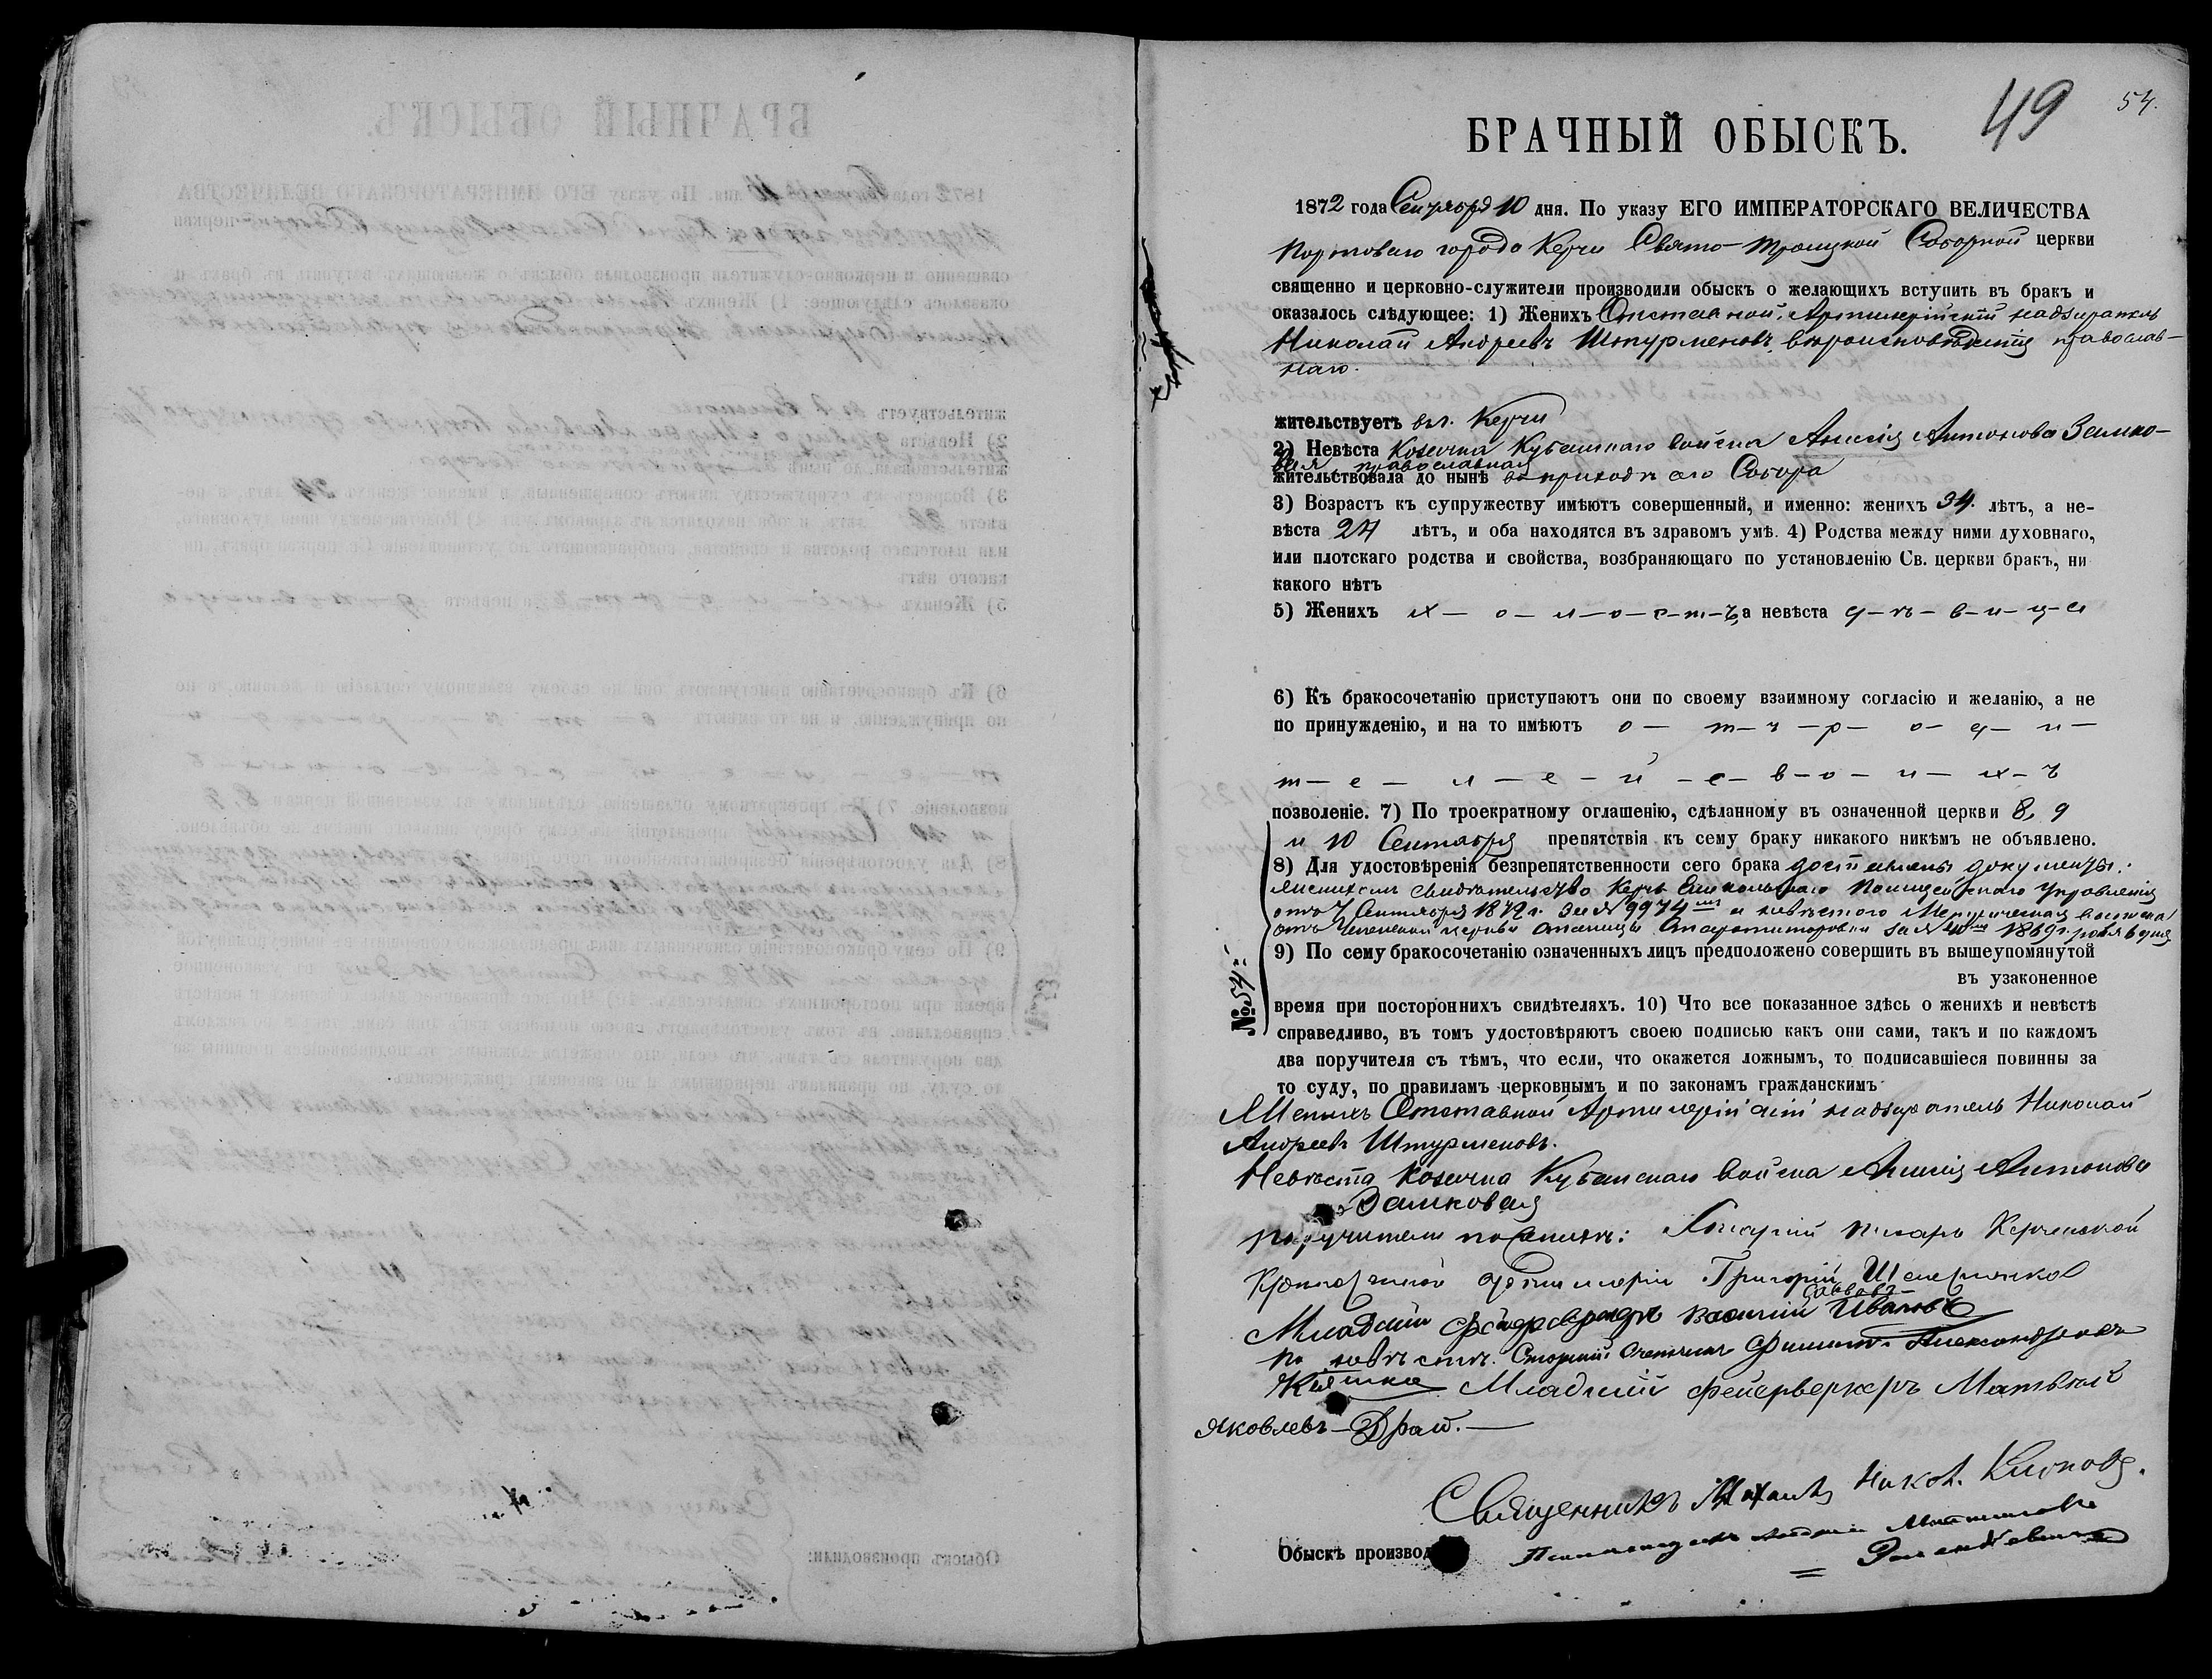 49 54.
БРАЧНЫЙ ОБЫСКЪ.
1872 года Сентября 10 дня. По указу ЕГО ИМПЕРАТОРСКАГО ВЕЛИЧЕСТВА
Портоваго города Керчи Свято-Троицкой Соборной церкви
священно и церковно-служители производили обыскъ о желающихъ вступить въ бракъ и
оказалось слѣдующее: 1) Женихъ Отставной Артилерійскій надзиратель
Николай Андреевъ Штурменовъ, вѣроисповѣданія православ-
наго.
жительствуетъ въ г. Керчи
2) Невѣста Козачка Кубанскаго войска Анисія Антонова Замко-
вая, православная
жительствовала до нынѣ въ приходѣ сего Собора
3) Возрастъ къ супружеству имѣютъ совершенный, и именно: женихъ 34. лѣтъ, а не-
вѣста 24 лѣтъ, и оба находятся въ здравомъ умѣ. 4) Родства между ними духовнаго,
или плотскаго родства и свойства, возбраняющаго по установленію Св. церкви бракъ, ни
какого нѣтъ
5) Женихъ х—о—л—о—с—т—ъ, а невѣста д—ѣ—в—и—ц—а
6) Къ бракосочетанію приступаютъ они по своему взаимному согласію и желанію, а не
по принужденію, и на то имѣютъ о— т—ъ —р— о— д— и—
т— е — л — е — й — с— в—о — и — х—ъ
позволеніе. 7) По троекратному оглашенію, сдѣланному въ означенной церкви 8, 9
и 10 Сентября препятствія къ сему браку никакого никѣмъ не объявлено.
8) Для удостовѣренія безпрепятственности сего брака документы:
женихомъ свидѣтельство Керчь Еникольскаго Полицейскаго Управленія
отъ 7 Сентября 1872 г. за № 9974 и невѣстою Метрическая выписка
отъ церкви станицы Старотитаровки за № 1869 г.
9) По сему бракосочетанію означенныхъ лицъ предположено совершить въ вышеупомянутой
въ узаконенное
№ 54.
время при постороннихъ свидѣтеляхъ. 10) Что все показанное здѣсь о женихѣ и невѣстѣ
справедливо, въ томъ удостовѣряютъ своею подписью какъ они сами, такъ и по каждомъ
два поручителя съ тѣмъ, что если, что окажется ложнымъ, то подписавшіеся повинны за
то суду, по правиламъ церковнымъ и по законамъ гражданскимъ
Женихъ Отставной Артилерійскій надзиратель Николай
Андреевъ Штурменовъ.
Невѣста Козачка Кубанскаго войска Анисія Антонова
Замковая
Поручители по женихѣ: писарь Керченской
Крѣпостной артиллеріи Григорій
Саввовъ
Младшій фейерверкеръ Василій Ивановъ
По невѣстѣ. Старшій Филиппъ Александровъ
Младшій фейерверкеръ Матвей
Яковлевъ—
Священникъ Михаилъ
Обыскъ производ